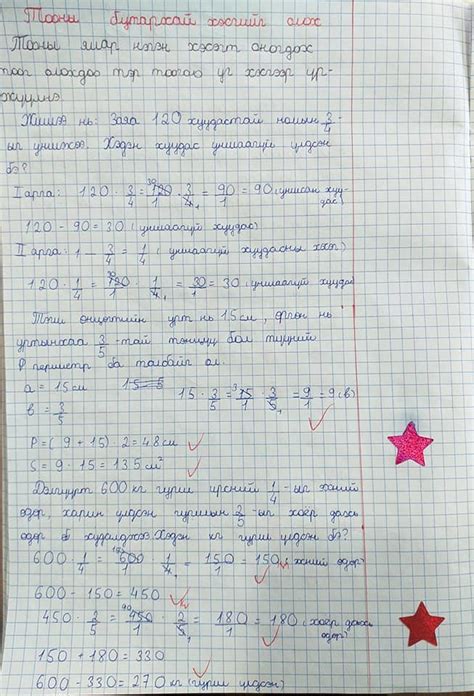 Тооны бутархай хэсгийг олох
Тооны ямар нэгэн хэсэгт оногдох
тоог олохдоо тэр тоогоо уг хэсгээр үр-
жүүлнэ
Жишээ нь: Заяа 120 хуудастай номын 3/4-
ыг уншжээ. Хэдэн хуудас уншаагүй үлдсэн
бэ?
I арга: 120 · 3/4 = 120/1 · 3/4 = 90/1 = 90 (уншсан хуу-
дас)
120 - 90 = 30 (уншаагүй хуудас)
II арга: 1 - 3/4 = 1/4 (уншаагүй хуудасны хэсэг)
120 · 1/4 = 120/1 · 1/4 = 30/1 = 30 (уншаагүй хуудас)
Тэгш өнцөгтийн урт нь 15 см, өргөн нь
уртынхаа 3/5-тай тэнцүү бол түүний
P периметр ба талбайг ол.
a = 15 см 15 · 3/5 = 15/1 · 3/5 = 9/1 = 9 (в)
в = 3/5
P = (9 + 15) · 2 = 48 см
S = 9 · 15 = 135 см²
Дэлгүүрт 600 кг гурил ирсний 1/4-ыг эхний
өдөр, харин үлдсэн гурилын 2/5-ыг хоёр дахь
өдөр худалджээ. Хэдэн кг гурил үлдсэн бэ?
600 · 1/4 = 600/1 1/4 = 150/1 = 150 (эхний өдөр)
600 - 150 = 450
450 · 2/5 = 450/1 · 2/5 = 180/1 = 180 (хоёр дахь
өдөр)
150 + 180 = 330
600 - 330 = 270 кг (гурил үлдсэн)